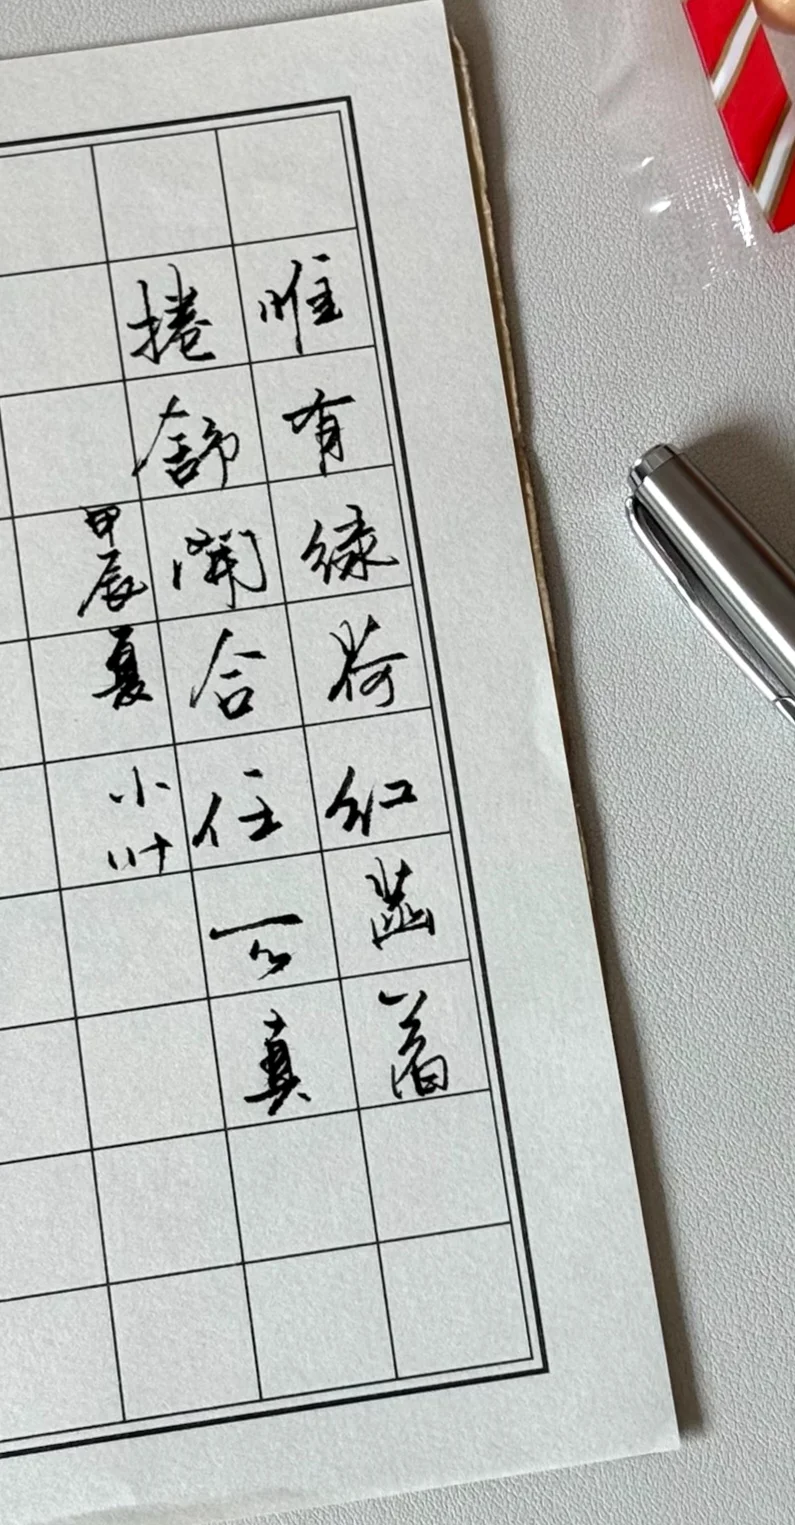 唯有绿荷红菡萏
捲舒開合任天真
甲辰夏
小叶